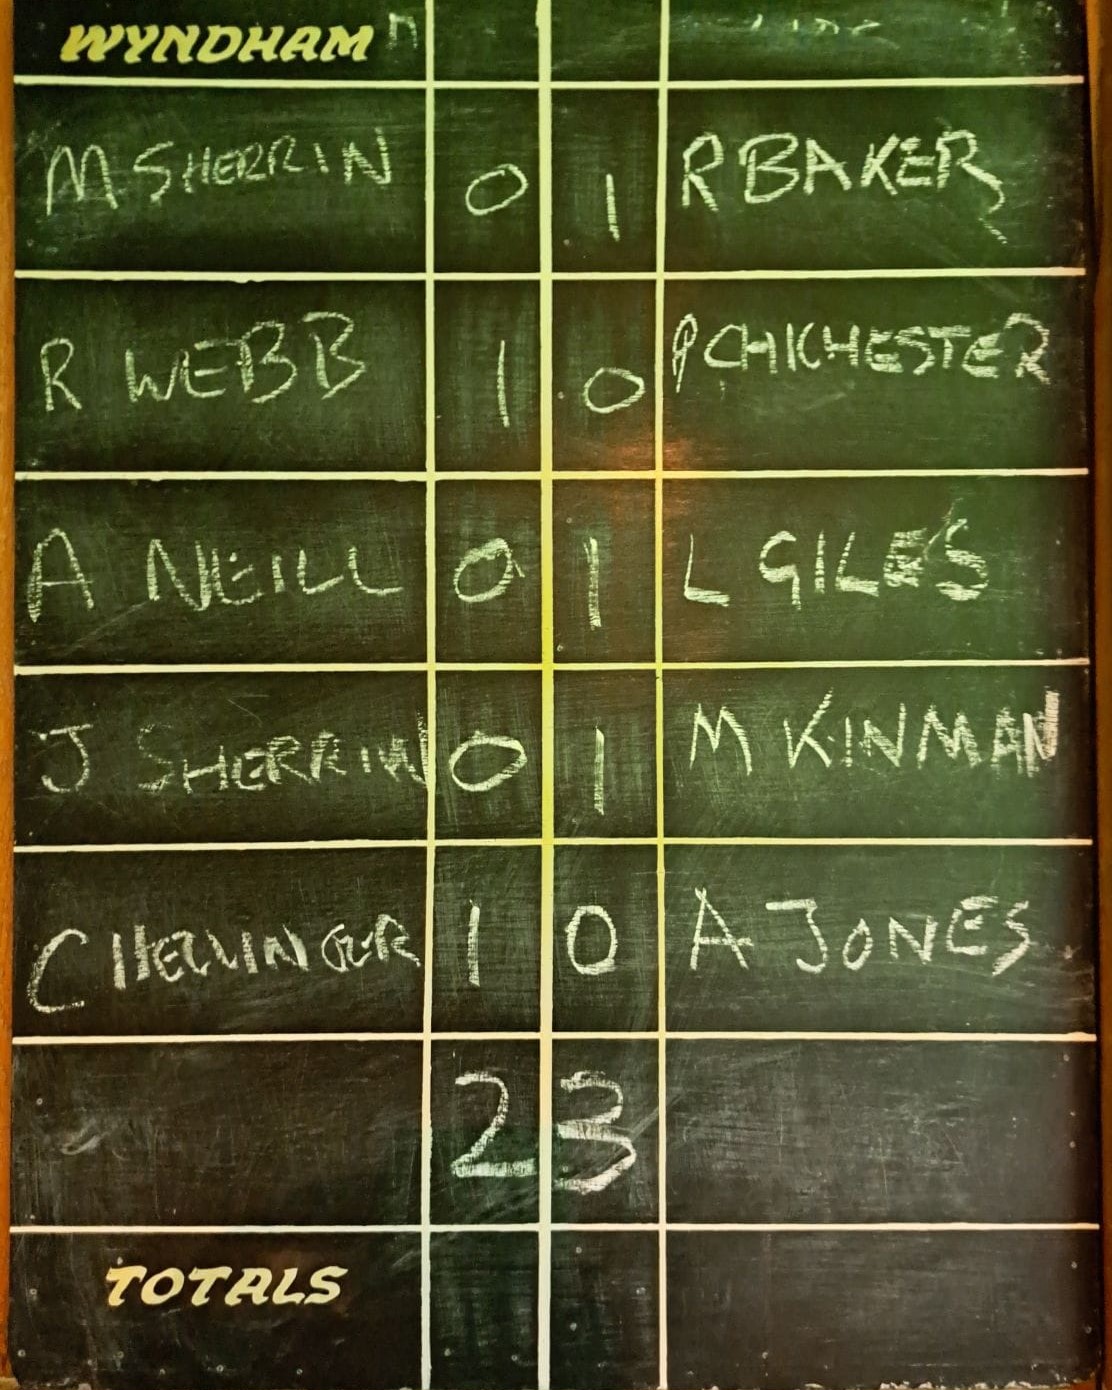 WYNDHAM
M SHERRIN 0 1 R BAKER
R WEBB 1 0 P CHICHESTER
A NEILL 0 1 L GILES
J SHERRIN 0 1 M KINMAN
C HELLINGER 1 0 A JONES
2 3
TOTALS